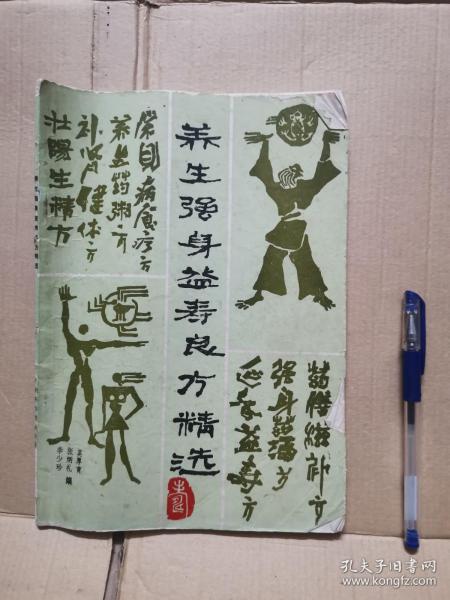 养生强身益寿良方精选
常见病食疗方
养生药粥方
补肾健体方
壮阳生精方
药膳滋补方
强身药酒方
延年益寿方
孟厚宽
张炳礼 编
李少珍
孔夫子旧书网
www.kongfz.com